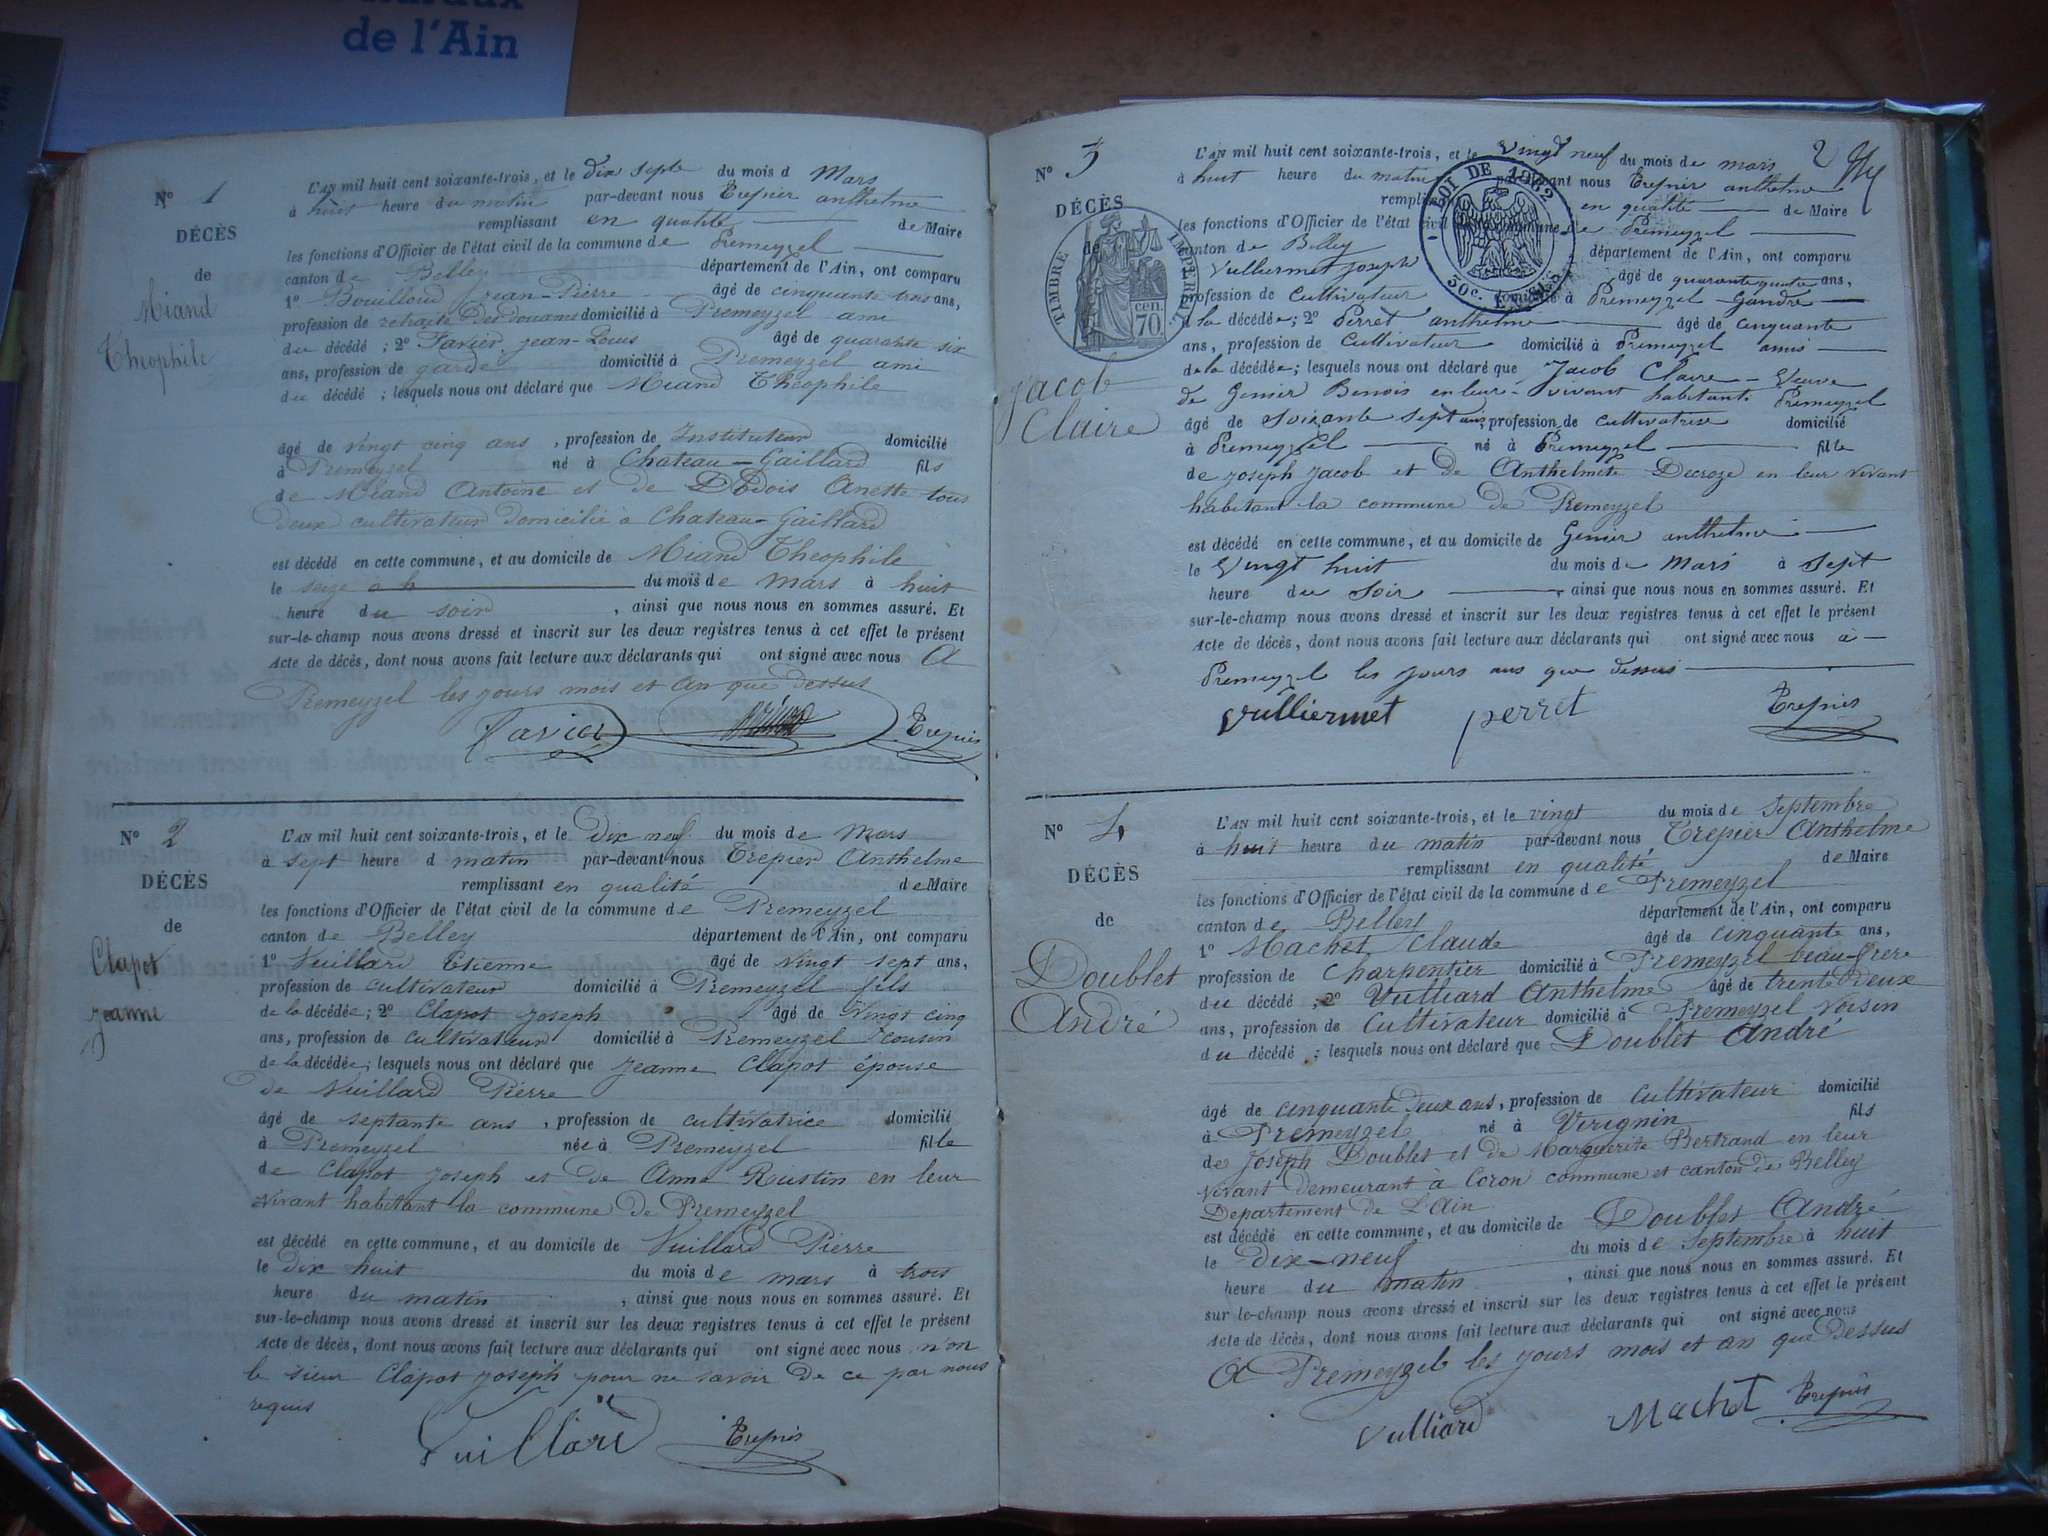 de l'Ain
N° 1
DÉCÈS
de
Miand
Théophile
L'AN mil huit cent soixante-trois, et le dix sept du mois d Mars
à huit heure du matin par-devant nous Trepier anthelme
remplissant en qualité de Maire
les fonctions d'Officier de l'état civil de la commune de Premeyzel
canton de Belley département de l'Ain, ont comparu
1° Bouilloud Jean-Pierre âgé de cinquante trois ans,
profession de retraite Des douanes domicilié à Premeyzel ami
du décédé ; 2° Favier Jean-Louis âgé de quarante six
ans, profession de garde domicilié à Premeyzel ami
du décédé ; lesquels nous ont déclaré que Miand Théophile
âgé de vingt cinq ans , profession de Instituteur domicilié
à Premeyzel né à Chateau-Gaillard fils
de Miand Antoine et de Anette tous
deux cultivateur domicilié à Chateau-Gaillard
est décédé en cette commune, et au domicile de Miand Theophile
le seize à h du mois de mars à huit
heure du soir , ainsi que nous nous en sommes assuré. Et
sur-le-champ nous avons dressé et inscrit sur les deux registres tenus à cet effet le présent
Acte de décès, dont nous avons fait lecture aux déclarants qui ont signé avec nous A
Premeyzel les jours mois et an que dessus
Favier Trepier
N° 2
DÉCÈS
de
Clapot
Jeanne
L'AN mil huit cent soixante-trois, et le dix neuf du mois de Mars
à sept heure d matin par-devant nous Trepier Anthelme
remplissant en qualité de Maire
les fonctions d'Officier de l'état civil de la commune de Premeyzel
canton de Belley département de l'Ain, ont comparu
1° Vuillard Etienne âgé de vingt sept ans,
profession de cultivateur domicilié à Premeyzel fils
de la décédée; 2° Clapot Joseph âgé de Vingt cinq
ans, profession de cultivateur domicilié à Premeyzel cousin
de la décédée; lesquels nous ont déclaré que Jeanne Clapot épouse
de Vuillard Pierre
âgé de septante ans , profession de cultivatrice domicilié
à Premeyzel née à Premeyzel fille
de Clapot Joseph et de Anne Rustin en leur
vivant habitant la commune de Premeyzel
est décédé en cette commune, et au domicile de Vuillard Pierre
le dix huit du mois de mars à trois
heure du matin , ainsi que nous nous en sommes assuré. Et
sur-le-champ nous avons dressé et inscrit sur les deux registres tenus à cet effet le présent
Acte de décès, dont nous avons fait lecture aux déclarants qui ont signé avec nous n'on
le sieur Clapot Joseph pour ne savoir de ce par nous
requis
Vuillard Trepier
N° 3
DÉCÈS
de
TIMBRE IMPÉRIAL
70 cen.
LOI DE 1862
30c. EN SUS
Jacob
Claire
2
L'AN mil huit cent soixante-trois, et le Vingt neuf du mois de mars
à huit heure du matin par-devant nous Trepier anthelme
remplissant en qualité de Maire
les fonctions d'Officier de l'état civil de la commune de Premeyzel
canton de Belley département de l'Ain, ont comparu
Vulliermet Joseph âgé de quarante quatre ans,
profession de Cultivateur domicilié à Premeyzel Gendre
d la décédée; 2° Perret anthelme âgé de cinquante
ans, profession de Cultivateur domicilié à Premeyzel amis
de la décédée; lesquels nous ont déclaré que Jacob Claire - Veuve
de Genier Benois en leur vivant habitante Premeyzel
âgé de soixante sept ans profession de cultivatrise domicilié
à Premeyzel né à Premeyzel fille
de Joseph Jacob et de Anthelmete Decroze en leur vivant
habitant la commune de Premeyzel
est décédé en cette commune, et au domicile de Genier anthelme
le Vingt huit du mois de Mars à sept
heure du soir , ainsi que nous nous en sommes assuré. Et
sur-le-champ nous avons dressé et inscrit sur les deux registres tenus à cet effet le présent
Acte de décès, dont nous avons fait lecture aux déclarants qui ont signé avec nous à
Premeyzel les jours ans que dessus
Vulliermet perret Trepier
N° 4
DÉCÈS
de
Doublet
André
L'AN mil huit cent soixante-trois, et le vingt du mois de septembre
à huit heure du matin par-devant nous Trepier Anthelme
remplissant en qualité de Maire
les fonctions d'Officier de l'état civil de la commune de Premeyzel
canton de Belley département de l'Ain, ont comparu
1° Machet Claude âgé de cinquante ans,
profession de Charpentier domicilié à Premeyzel beau-frere
du décédé ; 2° Vulliard Anthelme âgé de trente deux
ans, profession de Cultivateur domicilié à Premeyzel Voisin
du décédé ; lesquels nous ont déclaré que Doublet André
âgé de cinquante deux ans, profession de Cultivateur domicilié
à Premeyzel né à Virignin fils
de Joseph Doublet et de Marguerite Bertrand en leur
vivant demeurant à Coron commune et canton de Belley
Departement de L'Ain
est décédé en cette commune, et au domicile de Doublet André
le dix-neuf du mois de Septembre à huit
heure du matin , ainsi que nous nous en sommes assuré. Et
sur-le-champ nous avons dressé et inscrit sur les deux registres tenus à cet effet le présent
Acte de décès, dont nous avons fait lecture aux déclarants qui ont signé avec nous
A Premeyzel les jours mois et an que Dessus
Vulliard Machet Trepier